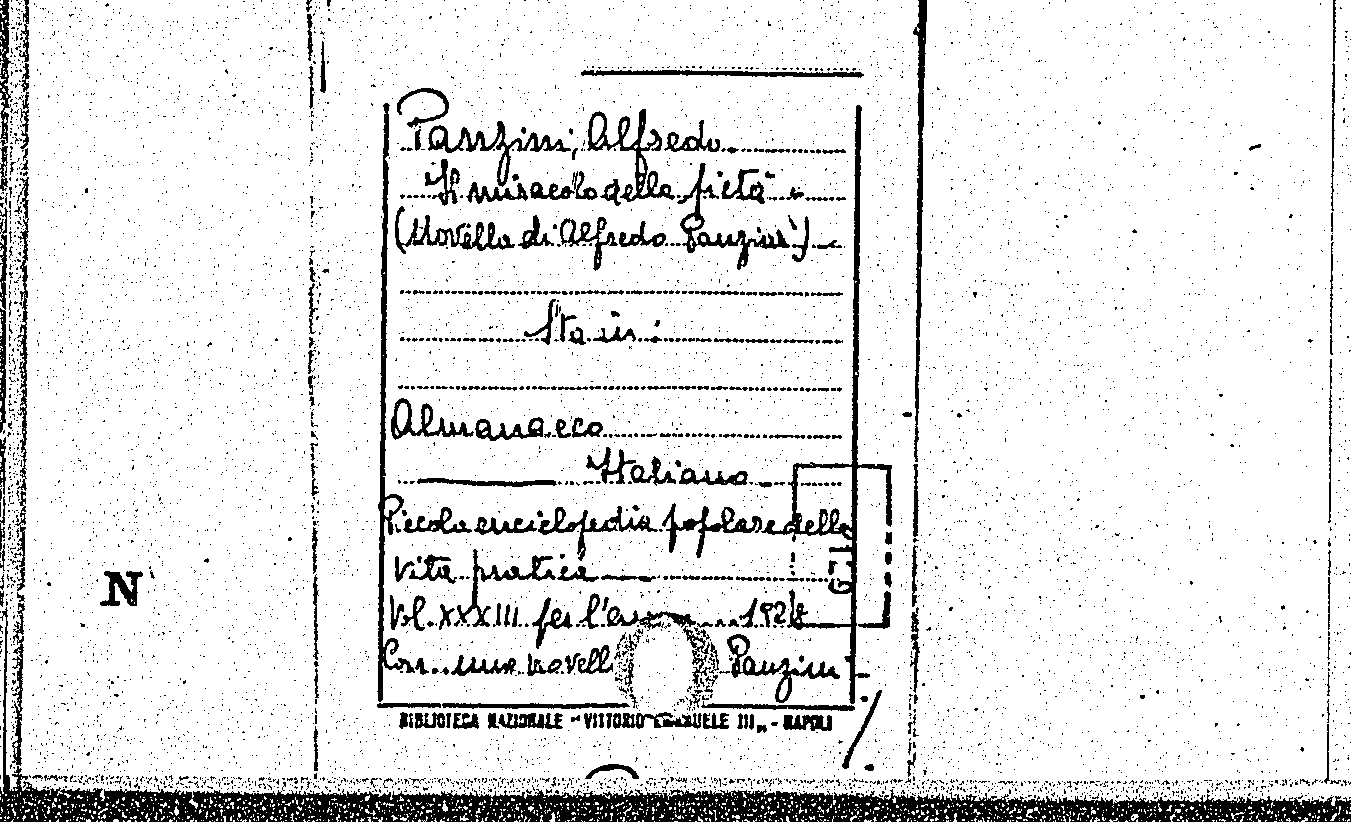 Panzini, Alfredo.
"Il miracolo della pietà".
(Novella di Alfredo Panzini) -
Sta in:
Almanacco
Italiano
Piccola enciclopedia popolare della
vita pratica
Vol. XXXIII per l'
Con una novella Panzini -
BIBLIOTECA NAZIONALE "VITTORIO EMANUELE III" - NAPOLI
N